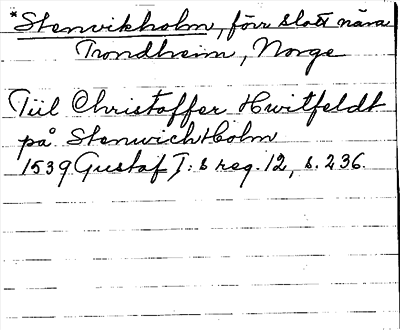 *Stenvikholm, förr slott nära
Trondheim, Norge
Till Christoffer Hwitfeldt
på Stenwichholm
1539 Gustaf I:s reg. 12, s. 236.